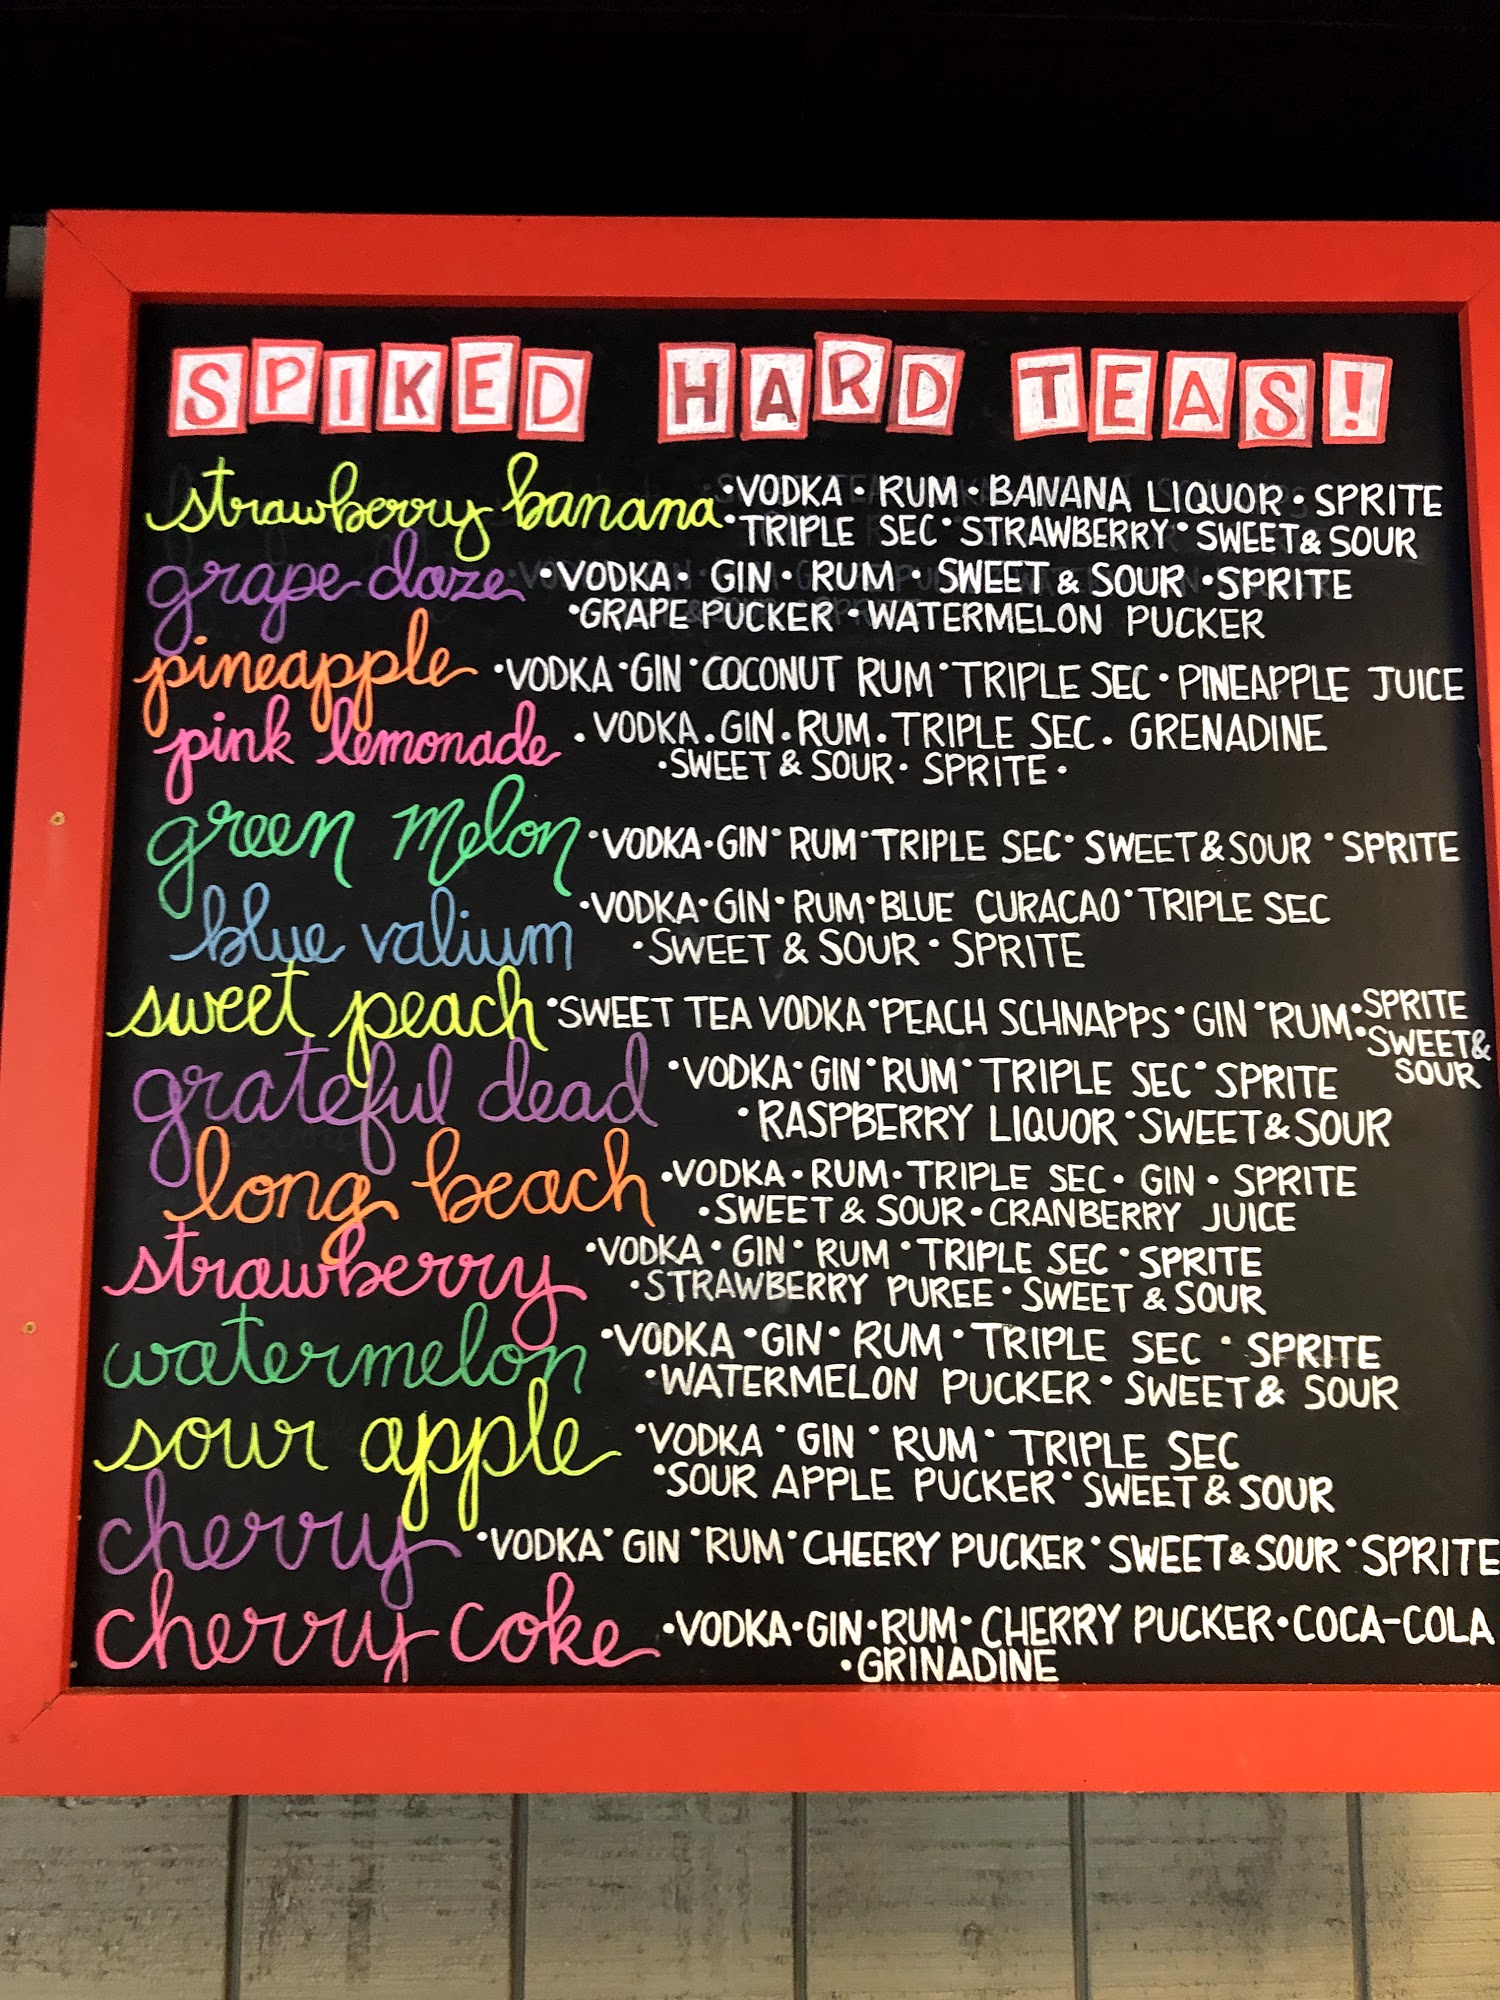 SPIKED HARD TEAS!
strawberry banana •VODKA • RUM • BANANA LIQUOR • SPRITE
•TRIPLE SEC • STRAWBERRY • SWEET & SOUR
grape daze •VODKA • GIN • RUM • SWEET & SOUR • SPRITE
•GRAPE PUCKER • WATERMELON PUCKER
pineapple •VODKA •GIN • COCONUT RUM • TRIPLE SEC • PINEAPPLE JUICE
pink lemonade •VODKA • GIN • RUM • TRIPLE SEC • GRENADINE
•SWEET & SOUR • SPRITE •
green melon •VODKA • GIN • RUM • TRIPLE SEC • SWEET & SOUR • SPRITE
blue valium •VODKA • GIN • RUM • BLUE CURACAO • TRIPLE SEC
•SWEET & SOUR • SPRITE
sweet peach •SWEET TEA VODKA •PEACH SCHNAPPS • GIN • RUM •SPRITE
•SWEET &
SOUR
grateful dead •VODKA • GIN • RUM • TRIPLE SEC • SPRITE
•RASPBERRY LIQUOR • SWEET & SOUR
long beach •VODKA • RUM • TRIPLE SEC • GIN • SPRITE
•SWEET & SOUR • CRANBERRY JUICE
strawberry •VODKA • GIN • RUM • TRIPLE SEC • SPRITE
•STRAWBERRY PUREE • SWEET & SOUR
watermelon •VODKA • GIN • RUM • TRIPLE SEC • SPRITE
•WATERMELON PUCKER • SWEET & SOUR
sour apple •VODKA • GIN • RUM • TRIPLE SEC
•SOUR APPLE PUCKER • SWEET & SOUR
cherry •VODKA • GIN • RUM • CHEERY PUCKER • SWEET & SOUR • SPRITE
cherry coke •VODKA • GIN • RUM • CHERRY PUCKER • COCA-COLA
•GRINADINE